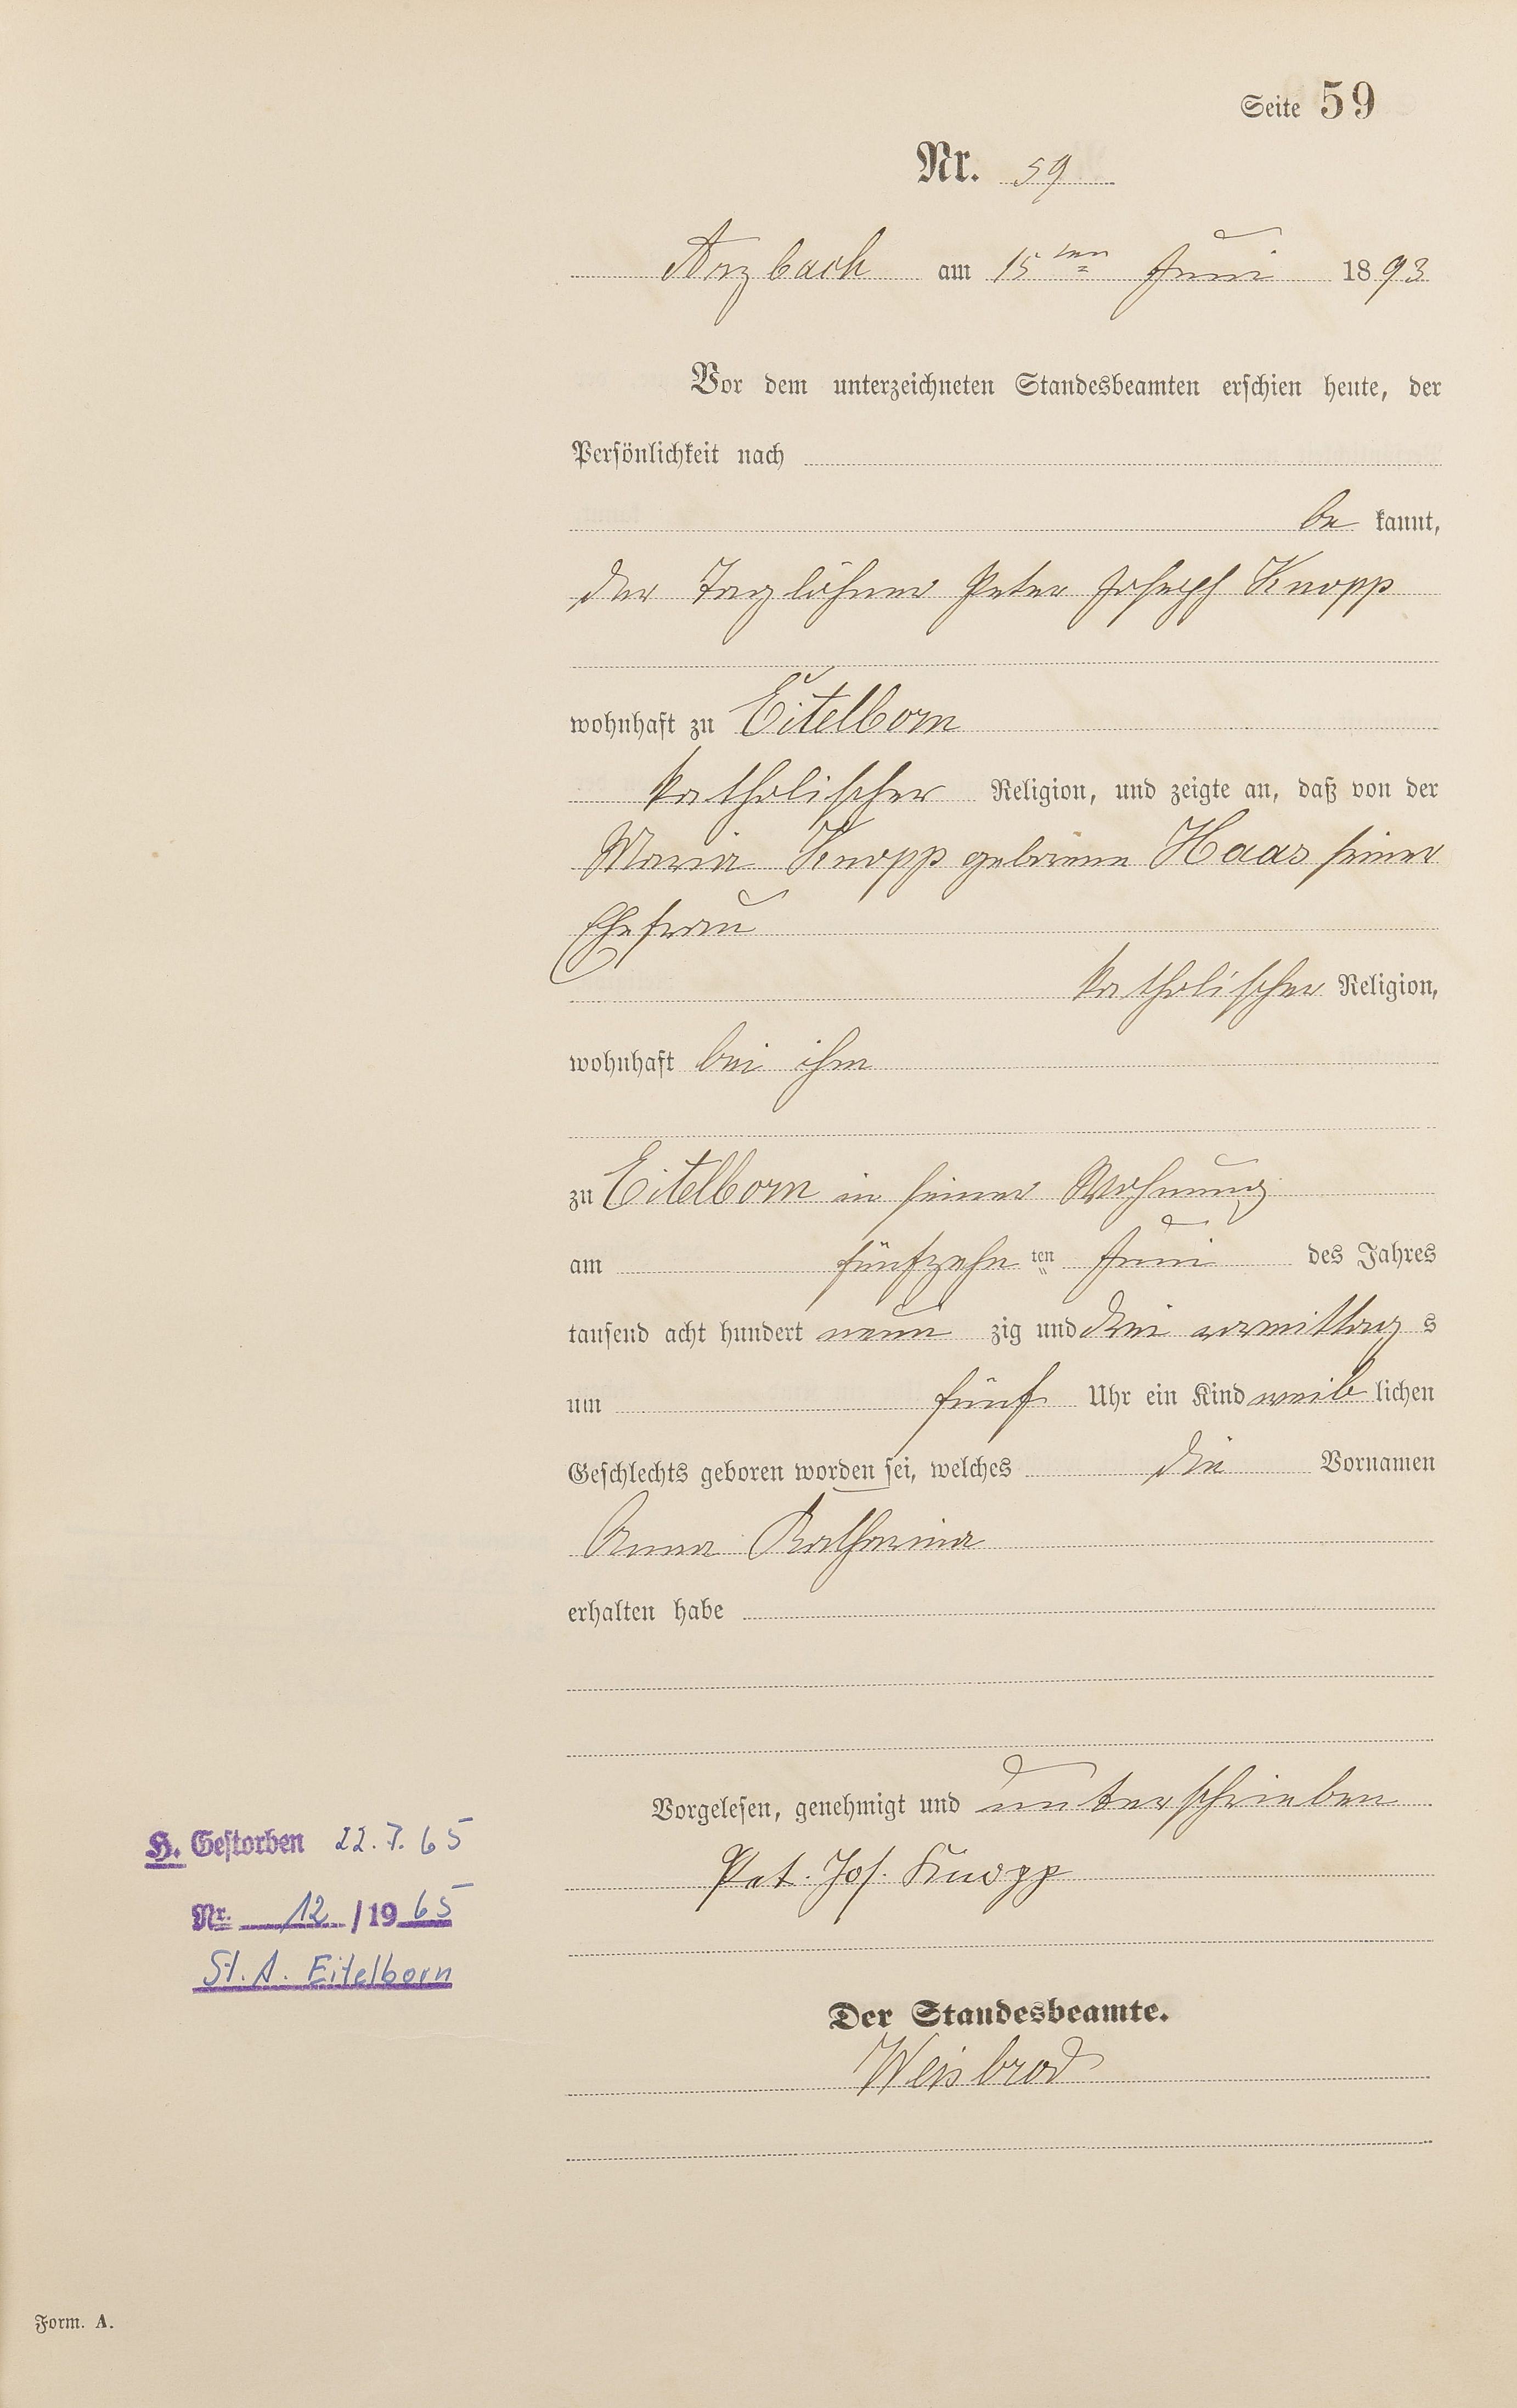 Seite 59
Nr. 59
Arzbach am 15ten Juni 1893
Vor dem unterzeichneten Standesbeamten erschien heute, der
Persönlichkeit nach
be kannt,
der Taglöhner Peter Joseph Knopp
wohnhaft zu Eitelborn
katholischer Religion, und zeigte an, daß von der
Maria Knopp geborene Haas seiner
Ehefrau
katholischer Religion,
wohnhaft bei ihm
zu Eitelborn in seiner Wohnung
am fünfzehn ten Juni des Jahres
tausend acht hundert neun zig und drei vormittag s
um fünf Uhr ein Kind weib lichen
Geschlechts geboren worden sei, welches die Vornamen
Anna Katharina
erhalten habe
Vorgelesen, genehmigt und unterschrieben
Pet. Jos. Knopp
H. Gestorben 22.7.65
Nr. 12/1965
St. A. Eitelborn
Der Standesbeamte.
Weisbrod
Form. A.